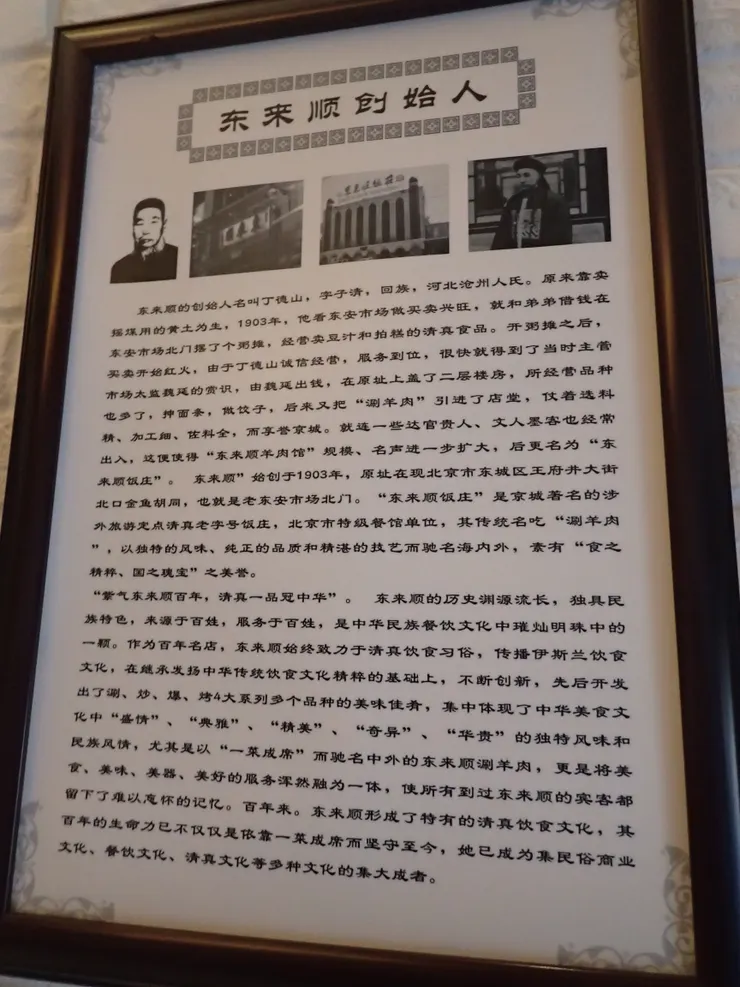 东来顺创始人
东来顺的创始人名叫丁德山，字子清，回族，河北沧州人氏。原来靠卖
摇煤用的黄土为生，1903年，他看东安市场做买卖兴旺，就和弟弟借钱在
东安市场北门摆了个粥摊，经营卖豆汁和扒糕的清真食品。开粥摊之后，
买卖开始红火，由于丁德山诚信经营，服务到位，很快就得到了当时主管
市场太监魏延的赏识，由魏延出钱，在原址上盖了二层楼房，所经营品种
也多了，抻面条，做饺子，后来又把“涮羊肉”引进了店堂，仗着选料
精、加工细、佐料全，而享誉京城。就连一些达官贵人、文人墨客也经常
出入，这便使得“东来顺羊肉馆”规模、名声进一步扩大，后更名为“东
来顺饭庄”。 东来顺”始创于1903年，原址在现北京市东城区王府井大街
北口金鱼胡同，也就是老东安市场北门。“东来顺饭庄”是京城著名的涉
外旅游定点清真老字号饭庄，北京市特级餐馆单位，其传统名吃“涮羊肉
”，以独特的风味、纯正的品质和精湛的技艺而驰名海内外，素有“食之
精粹、国之瑰宝”之美誉。
“紫气东来顺百年，清真一品冠中华”。 东来顺的历史渊源流长，独具民
族特色，来源于百姓，服务于百姓，是中华民族餐饮文化中璀灿明珠中的
一颗。作为百年名店，东来顺始终致力于清真饮食习俗，传播伊斯兰饮食
文化，在继承发扬中华传统饮食文化精粹的基础上，不断创新，先后开发
出了涮、炒、爆、烤4大系列多个品种的美味佳肴，集中体现了中华美食文
化中“盛情”、“典雅”、“精美”、“奇异”、“华贵”的独特风味和
民族风情，尤其是以“一菜成席”而驰名中外的东来顺涮羊肉，更是将美
食、美味、美器、美好的服务浑然融为一体，使所有到过东来顺的宾客都
留下了难以忘怀的记忆。百年来。东来顺形成了特有的清真饮食文化，其
百年的生命力已不仅仅是依靠一菜成席而坚守至今，她已成为集民俗商业
文化、餐饮文化、清真文化等多种文化的集大成者。